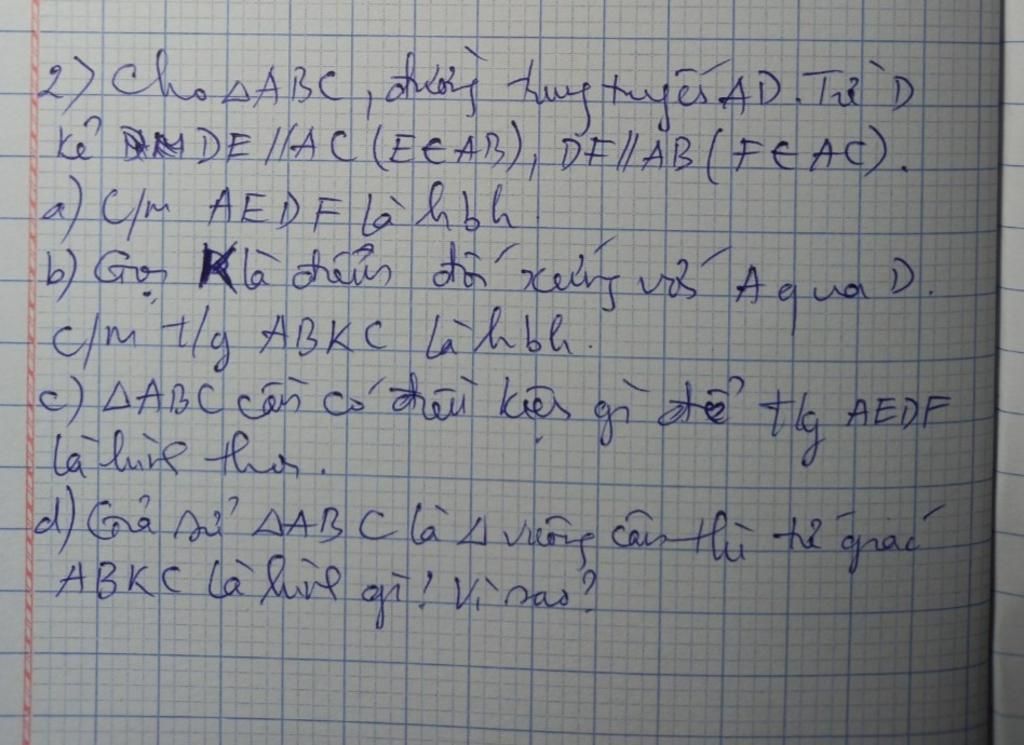 2) Cho △ABC, đường trung tuyến AD. Từ D
kẻ DE//AC (E∈AB), DF//AB (F∈AC).
a) C/m AEDF là hbh
b) Gọi K là điểm đối xứng với A qua D.
C/m t/g ABKC là hbh.
c) △ABC cần có điều kiện gì để t/g AEDF
là hình thoi.
d) Giả sử △ABC là △ vuông cân thì tứ giác
ABKC là hình gì? Vì sao?